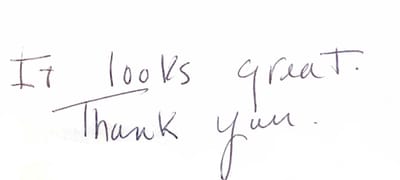 It looks great.
Thank you.